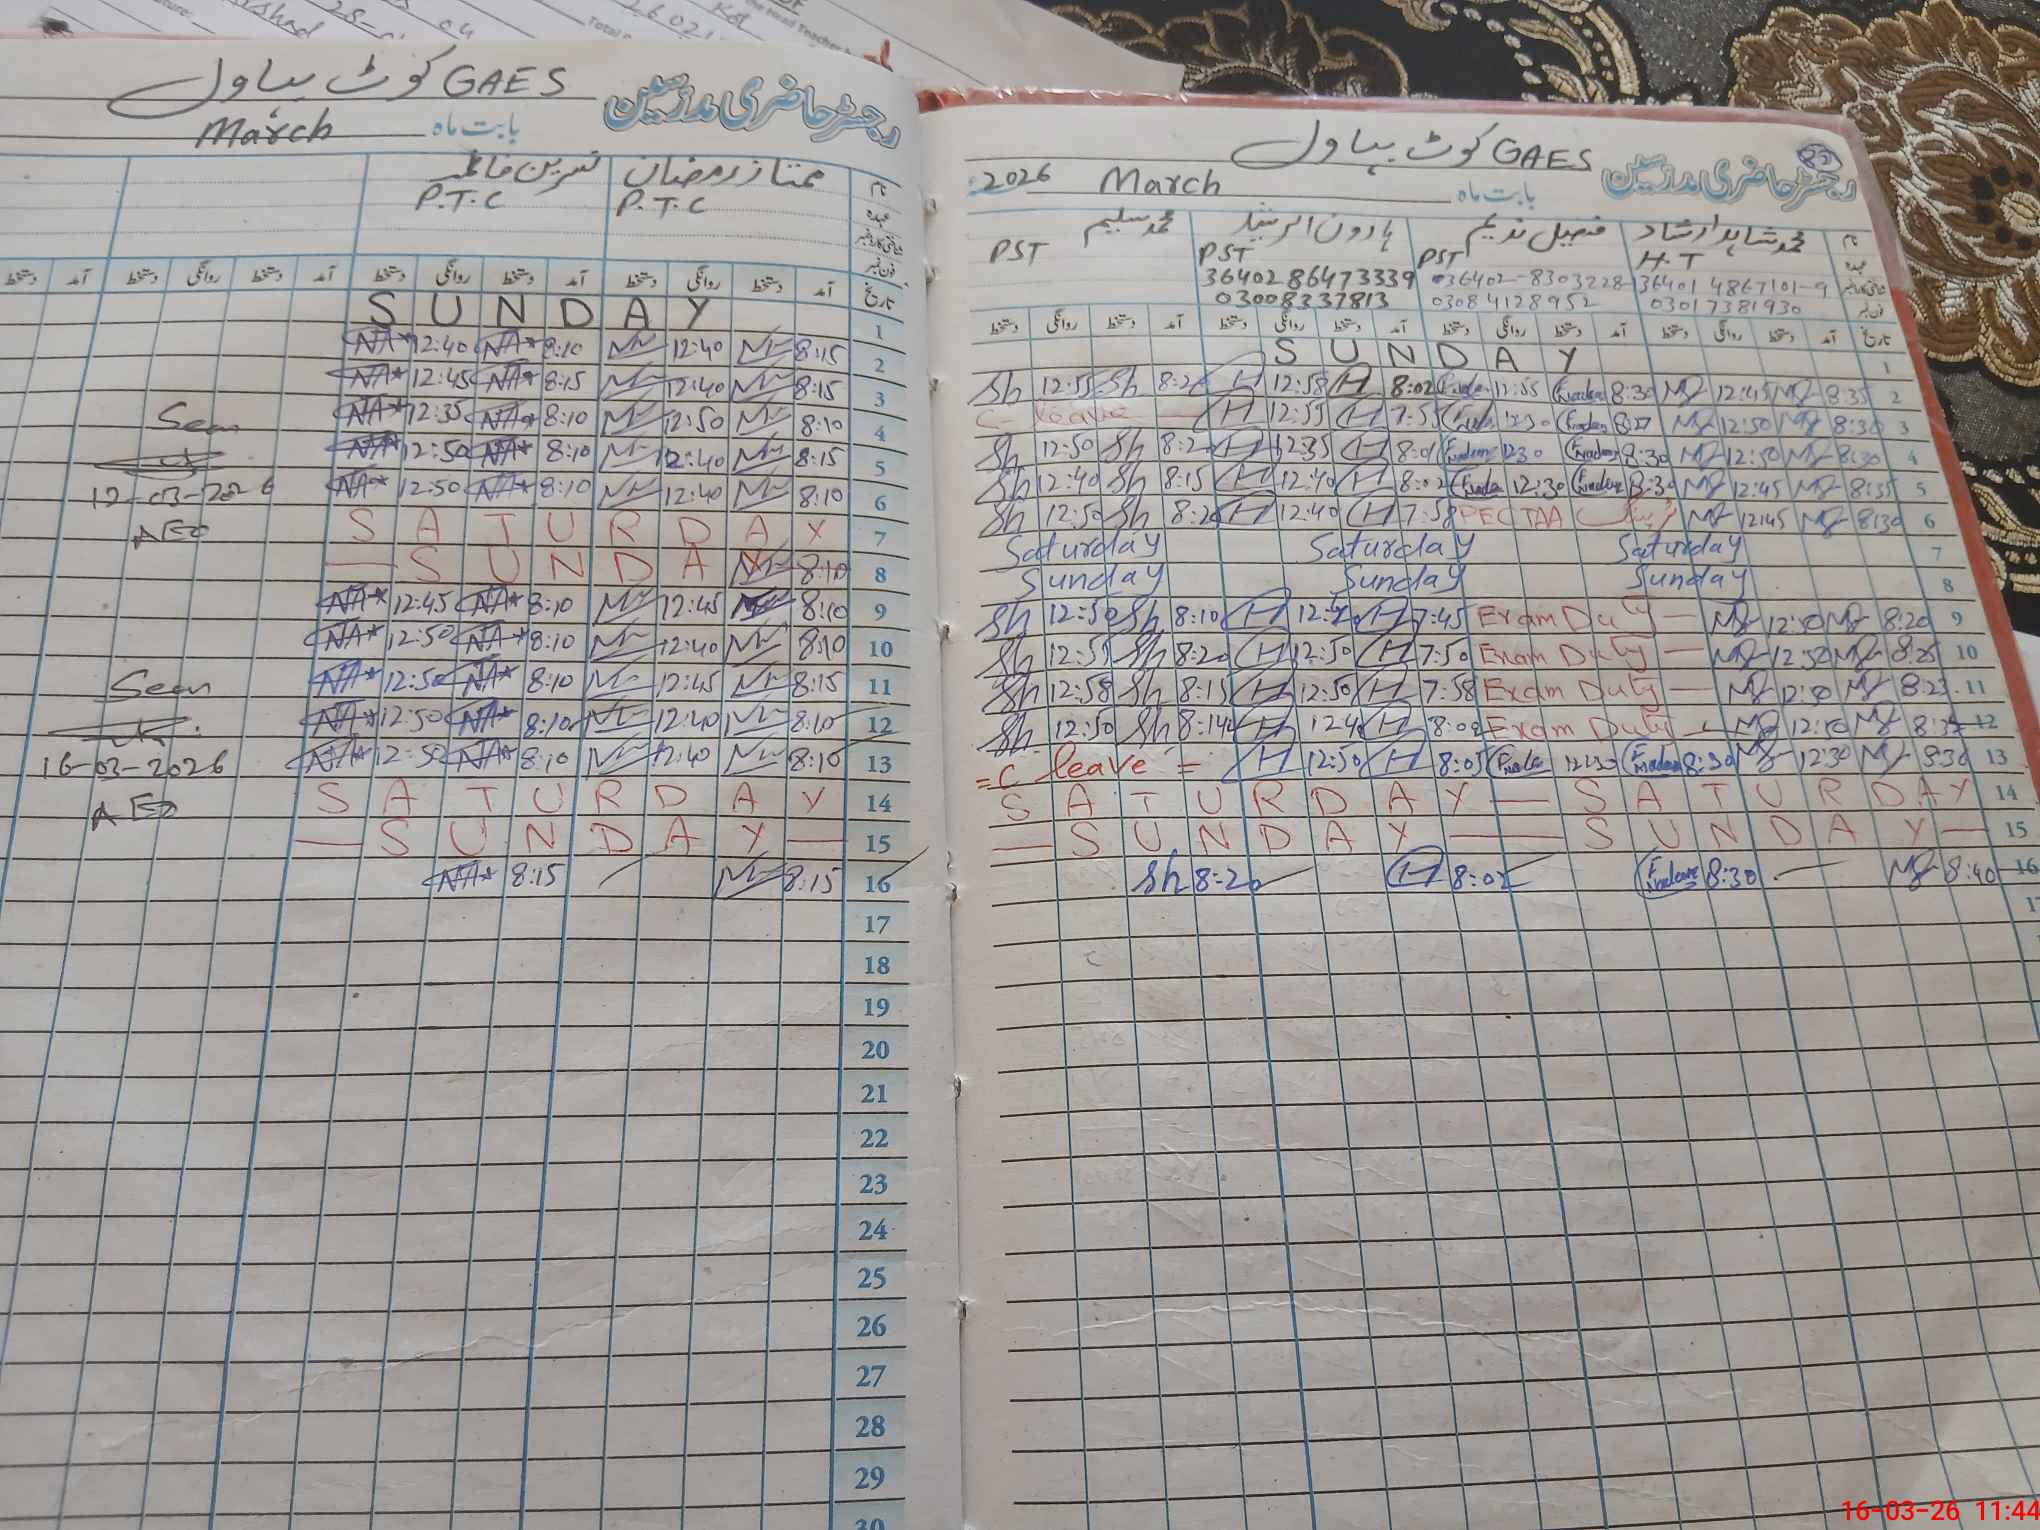 GAES کوٹ بہاول
رجسٹر حاضری مدرسین
بابت ماہ March
نام ممتاز رمضان نسرین فاطمہ
عہدہ P.T.C P.T.C
تاریخ آمد دستخط روانگی دستخط آمد دستخط روانگی دستخط آمد دستخط روانگی دستخط آمد دستخط
1 S U N D A Y
2 NA* 12:40 NA* 8:10 12:40 8:15
3 NA* 12:45 NA* 8:15 12:40 8:15
4 NA* 12:35 NA* 8:10 12:50 8:10
5 NA* 12:50 NA* 8:10 12:40 8:15
6 NA* 12:50 NA* 8:10 12:40 8:10
7 S A T U R D A Y
8 — S U N D A Y 8:10
9 NA* 12:45 NA* 8:10 12:45 8:10
10 NA* 12:50 NA* 8:10 12:40 8:10
11 NA* 12:50 NA* 8:10 12:45 8:15
12 NA* 12:50 NA* 8:10 12:40 8:10
13 NA* 12:50 NA* 8:10 12:40 8:10
14 S A T U R D A Y
15 — S U N D A Y —
16 NA* 8:15 8:15
17
18
19
20
21
22
23
24
25
26
27
28
29
30
Seen
12-03-2026
AEO
Seen
16-03-2026
AEO
GAES کوٹ بہاول
رجسٹر حاضری مدرسین
بابت ماہ March 2026
نام محمد شاہد ارشاد فیصل ندیم ہارون الرشید محمد سلیم
عہدہ H.T PST PST PST
36401 4867101-9 36402-8303228 36402 86473339
03017381930 03084128952 03008337813
تاریخ آمد دستخط روانگی دستخط آمد دستخط روانگی دستخط آمد دستخط روانگی دستخط آمد دستخط روانگی دستخط
S U N D A Y 1
Sh 12:55 Sh 8:20 H 12:58 H 8:02 12:55 8:30 12:45 8:35 2
C- leave H 12:55 H 7:55 12:30 8:27 12:50 8:30 3
Sh 12:50 Sh 8:20 H 12:35 H 8:01 12:30 8:30 12:50 8:30 4
Sh 12:40 Sh 8:15 H 12:40 H 8:02 12:30 8:30 12:45 8:35 5
Sh 12:50 Sh 8:20 H 12:40 H 7:58 PECTAA 12:45 8:30 6
Saturday Saturday Saturday 7
Sunday Sunday Sunday 8
Sh 12:50 Sh 8:10 H H 7:45 Exam Duty — 8:20 9
Sh 12:55 Sh 8:20 H 12:50 H 7:50 Exam Duty — 12:30 8:25 10
Sh 12:58 Sh 8:15 H 12:50 H 7:58 Exam Duty — 12:30 8:23 11
Sh 12:50 Sh 8:14 H 12:40 H 8:02 Exam Duty 12:30 12
= C leave = H 12:50 H 8:05 12:30 8:30 12:30 8:30 13
S A T U R D A Y — S A T U R D A Y 14
— S U N D A Y — S U N D A Y — 15
Sh 8:20 H 8:02 8:30 8:40 16
16-03-26 11:44